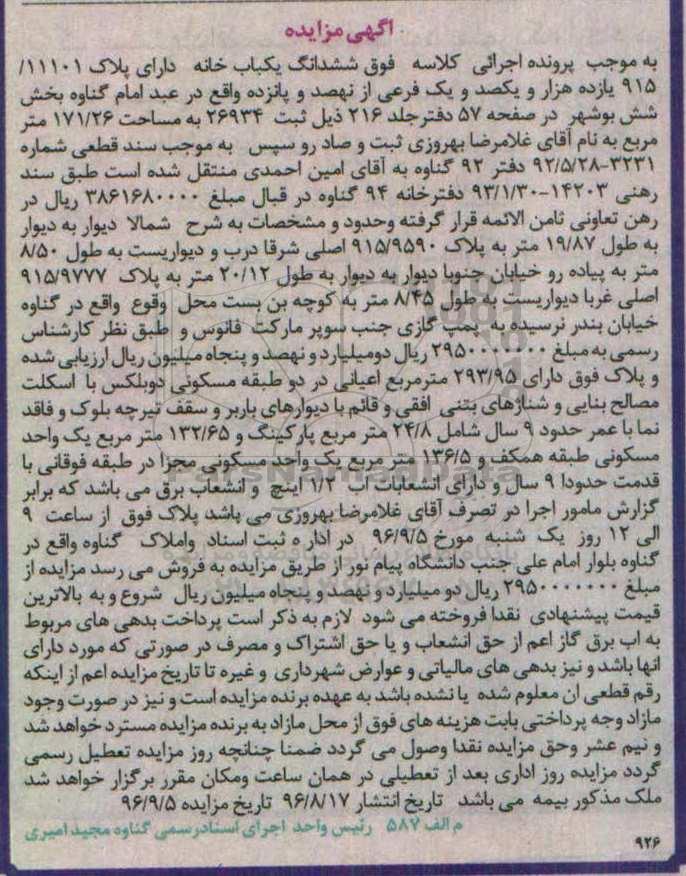 آگهی مزایده
به موجب پرونده اجرائی کلاسه فوق ششدانگ یکباب خانه دارای پلاک ۱۱۱۰۱/
۹۱۵ یازده هزار و یکصد و یک فرعی از نهصد و پانزده واقع در عبد امام گناوه بخش
شش بوشهر در صفحه ۵۷ دفتر جلد ۲۱۶ ذیل ثبت ۲۶۹۳۴ به مساحت ۱۷۱/۲۶ متر
مربع به نام آقای غلامرضا بهروزی ثبت و صاد رو سپس به موجب سند قطعی شماره
۹۲/۵/۲۸-۳۲۳۱ دفتر ۹۲ گناوه به آقای امین احمدی منتقل شده است طبق سند
رهنی ۱۴۲۰۳-۹۳/۱/۳۰ دفترخانه ۹۴ گناوه در قبال مبلغ ۳۸۶۱۶۸۰۰۰۰ ریال در
رهن تعاونی ثامن الائمه قرار گرفته وحدود و مشخصات به شرح شمالا دیوار به دیوار
به طول ۱۹/۸۷ متر به پلاک ۹۱۵/۹۵۹۰ اصلی شرقا درب و دیواریست به طول ۸/۵۰
متر به پیاده رو خیابان جنوبا دیوار به دیوار به طول ۲۰/۱۲ متر به پلاک ۹۱۵/۹۷۷۷
اصلی غربا دیواریست به طول ۸/۴۵ متر به کوچه بن بست محل وقوع واقع در گناوه
خیابان بندر نرسیده به پمپ گازی جنب سوپر مارکت فانوس و طبق نظر کارشناس
رسمی به مبلغ ۲۹۵۰۰۰۰۰۰۰ ریال دومیلیارد و نهصد و پنجاه میلیون ریال ارزیابی شده
و پلاک فوق دارای ۲۹۳/۹۵ مترمربع اعیانی در دو طبقه مسکونی دوبلکس با اسکلت
مصالح بنایی و شناژهای بتنی افقی و قائم با دیوارهای باربر و سقف تیرچه بلوک و فاقد
نما با عمر حدود ۹ سال شامل ۲۴/۸ متر مربع پارکینگ و ۱۳۲/۶۵ متر مربع یک واحد
مسکونی طبقه همکف و ۱۳۶/۵ متر مربع یک واحد مسکونی مجزا در طبقه فوقانی با
قدمت حدودا ۹ سال و دارای انشعابات اب ۱/۲ اینچ و انشعاب برق می باشد که برابر
گزارش مامور اجرا در تصرف آقای غلامرضا بهروزی می باشد پلاک فوق از ساعت ۹
الی ۱۲ روز یک شنبه مورخ ۹۶/۹/۵ در اداره ثبت اسناد واملاک گناوه واقع در
گناوه بلوار امام علی جنب دانشگاه پیام نور از طریق مزایده به فروش می رسد مزایده از
مبلغ ۲۹۵۰۰۰۰۰۰۰ ریال دو میلیارد و نهصد و پنجاه میلیون ریال شروع و به بالاترین
قیمت پیشنهادی نقدا فروخته می شود لازم به ذکر است پرداخت بدهی های مربوط
به اب برق گاز اعم از حق انشعاب و یا حق اشتراک و مصرف در صورتی که مورد دارای
انها باشد و نیز بدهی های مالیاتی و عوارض شهرداری و غیره تا تاریخ مزایده اعم از اینکه
رقم قطعی ان معلوم شده یا نشده باشد به عهده برنده مزایده است و نیز در صورت وجود
مازاد وجه پرداختی بابت هزینه های فوق از محل مازاد به برنده مزایده مسترد خواهد شد
و نیم عشر وحق مزایده نقدا وصول می گردد ضمنا چنانچه روز مزایده تعطیل رسمی
گردد مزایده روز اداری بعد از تعطیلی در همان ساعت ومکان مقرر برگزار خواهد شد
ملک مذکور بیمه می باشد تاریخ انتشار ۹۶/۸/۱۷ تاریخ مزایده ۹۶/۹/۵
م الف ۵۸۷ رئیس واحد اجرای اسناد رسمی گناوه مجید امیری
۹۲۶